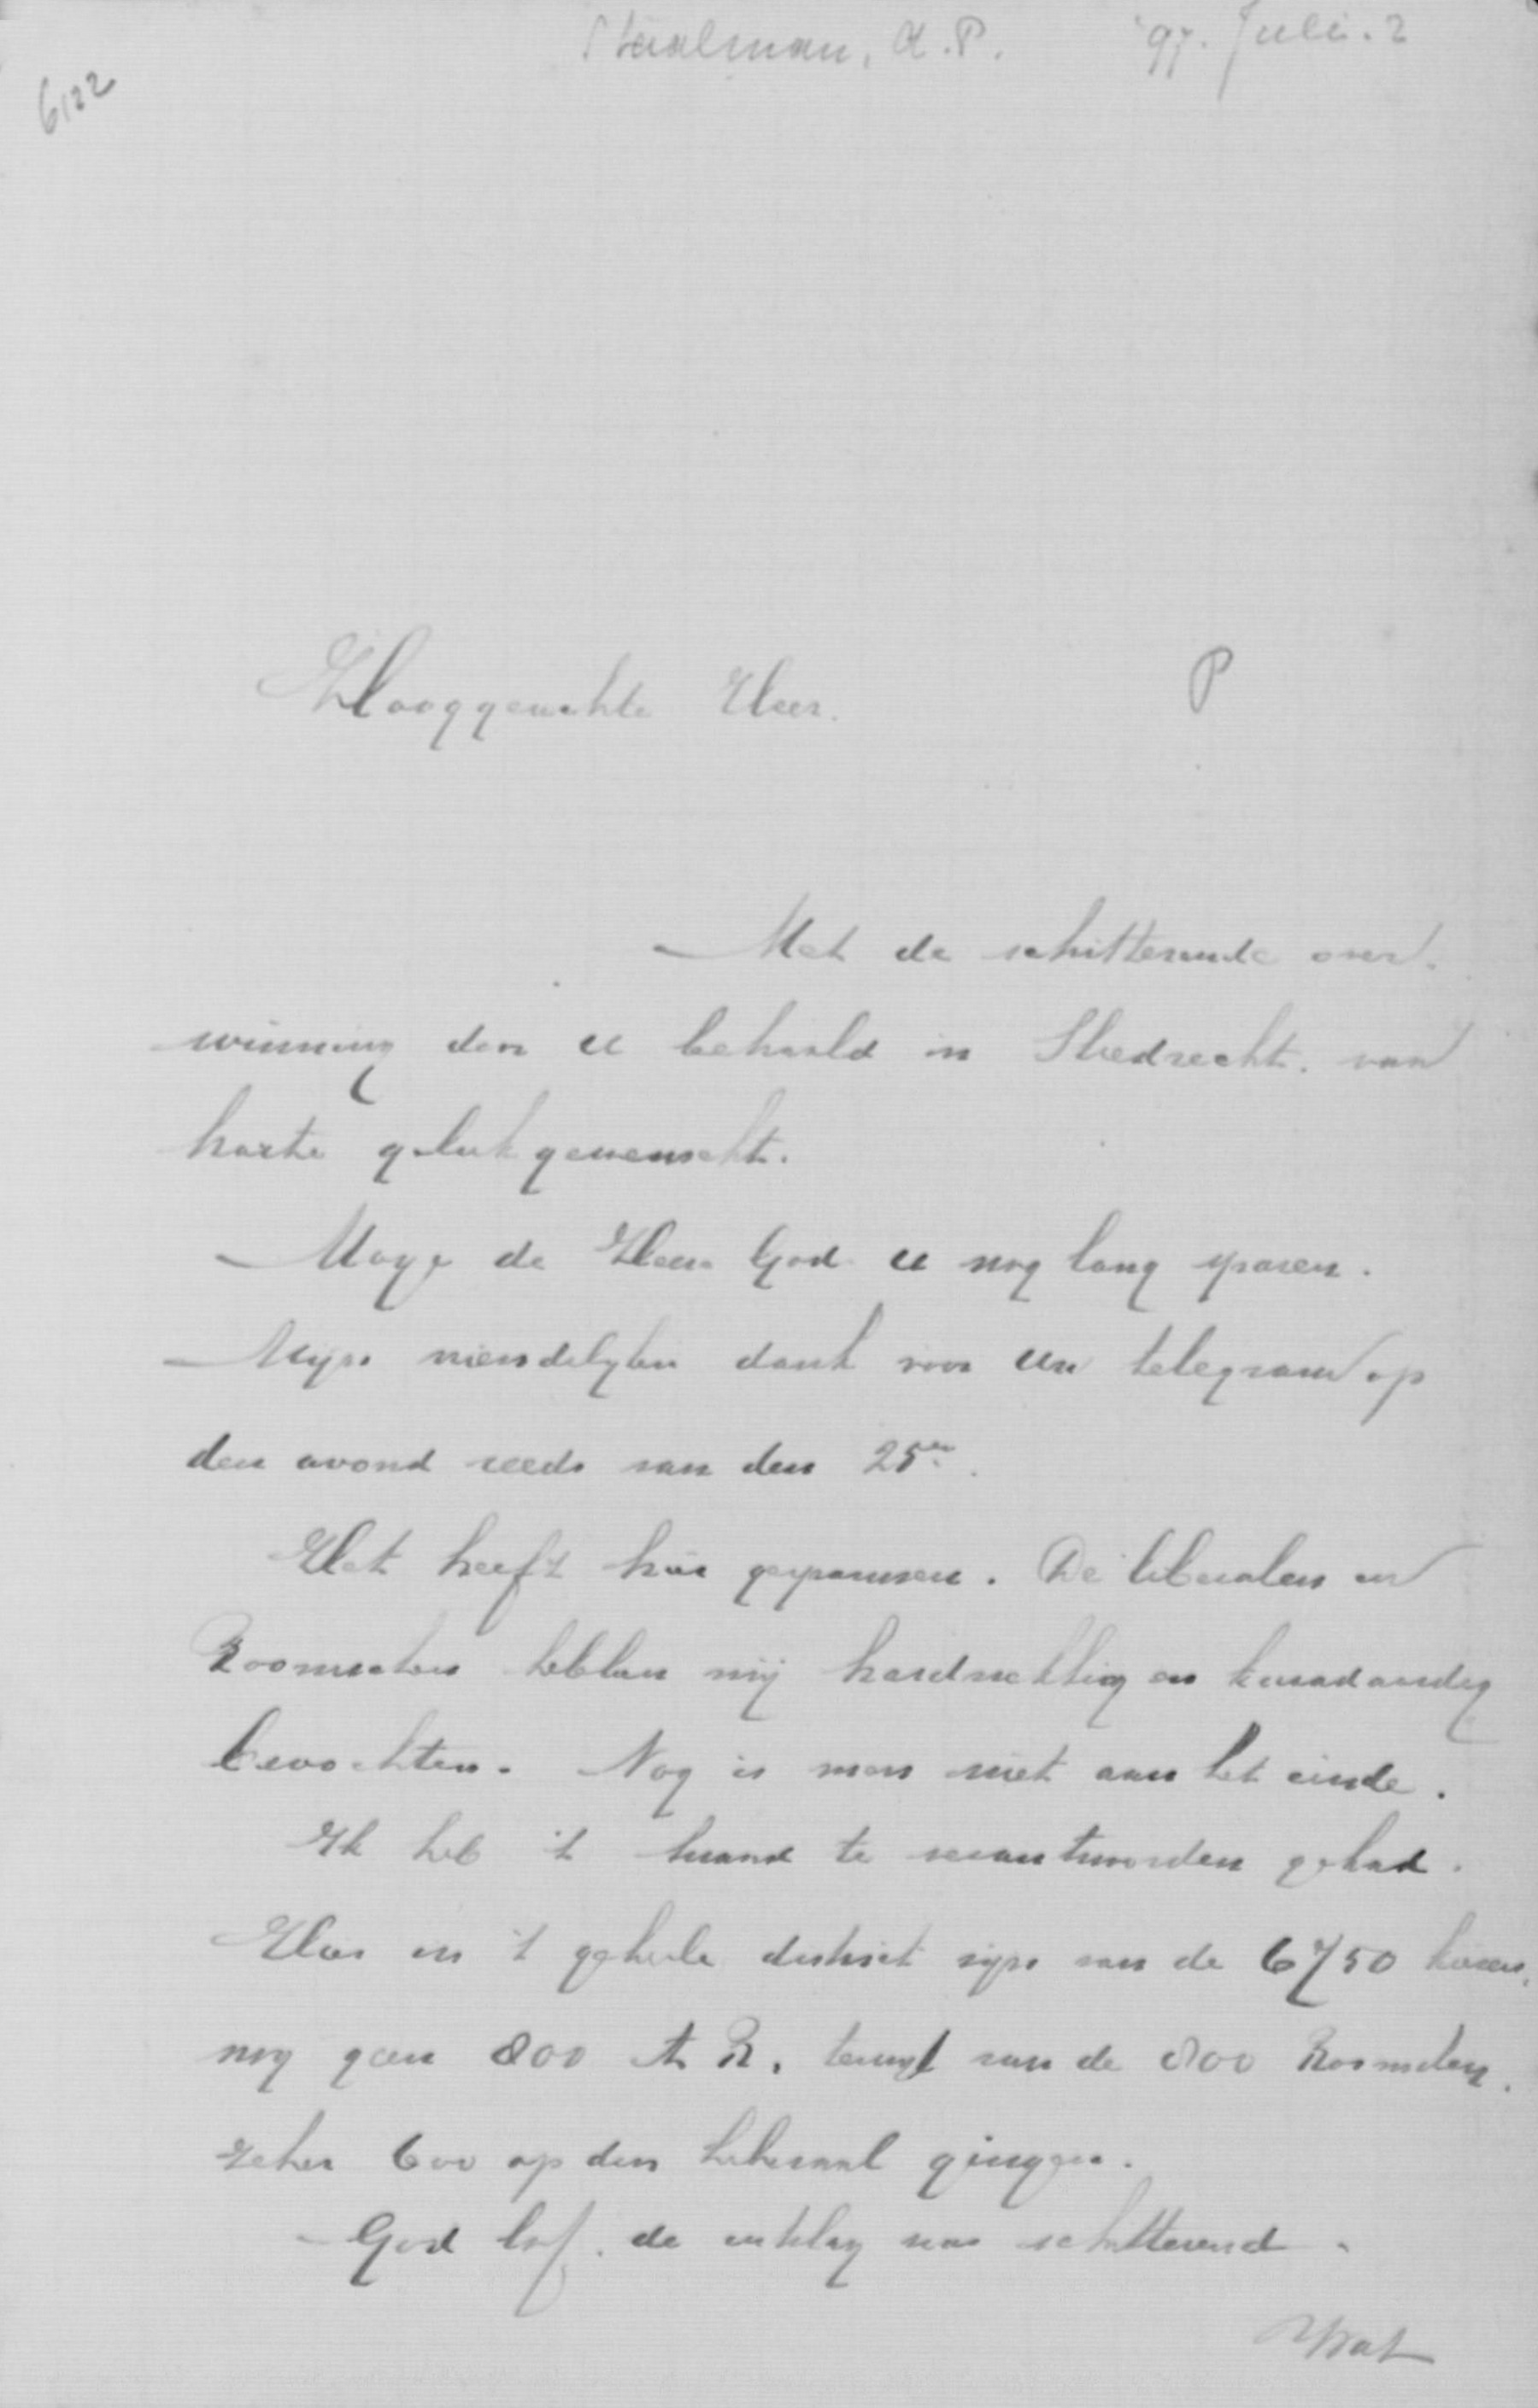 Staalman, A.P. '97. Juli. 2
6122
Hooggeachte Heer. P
Met de schitterende over-
winning door U behaald in Sliedrecht. van
harte gelukgewenscht.
Moge de Heere God U nog lang sparen.
Mijn vriendelijken dank voor Uw telegram op
den avond reeds van den 25en.
Het heeft hier gespannen. De liberalen en
Roomschen hebben mij hardnekkig en kwaadaardig
bevochten. Nog is men niet aan het einde.
Ik heb 't kwaad te verantwoorden gehad.
Hier in 't geheele district zijn van de 6750 kiezers,
nog geen 800 A R. terwijl van de 800 Roomschen,
zeker 600 op den liberaal gingen.
God lof. de uitslag was schitterend.
Wat